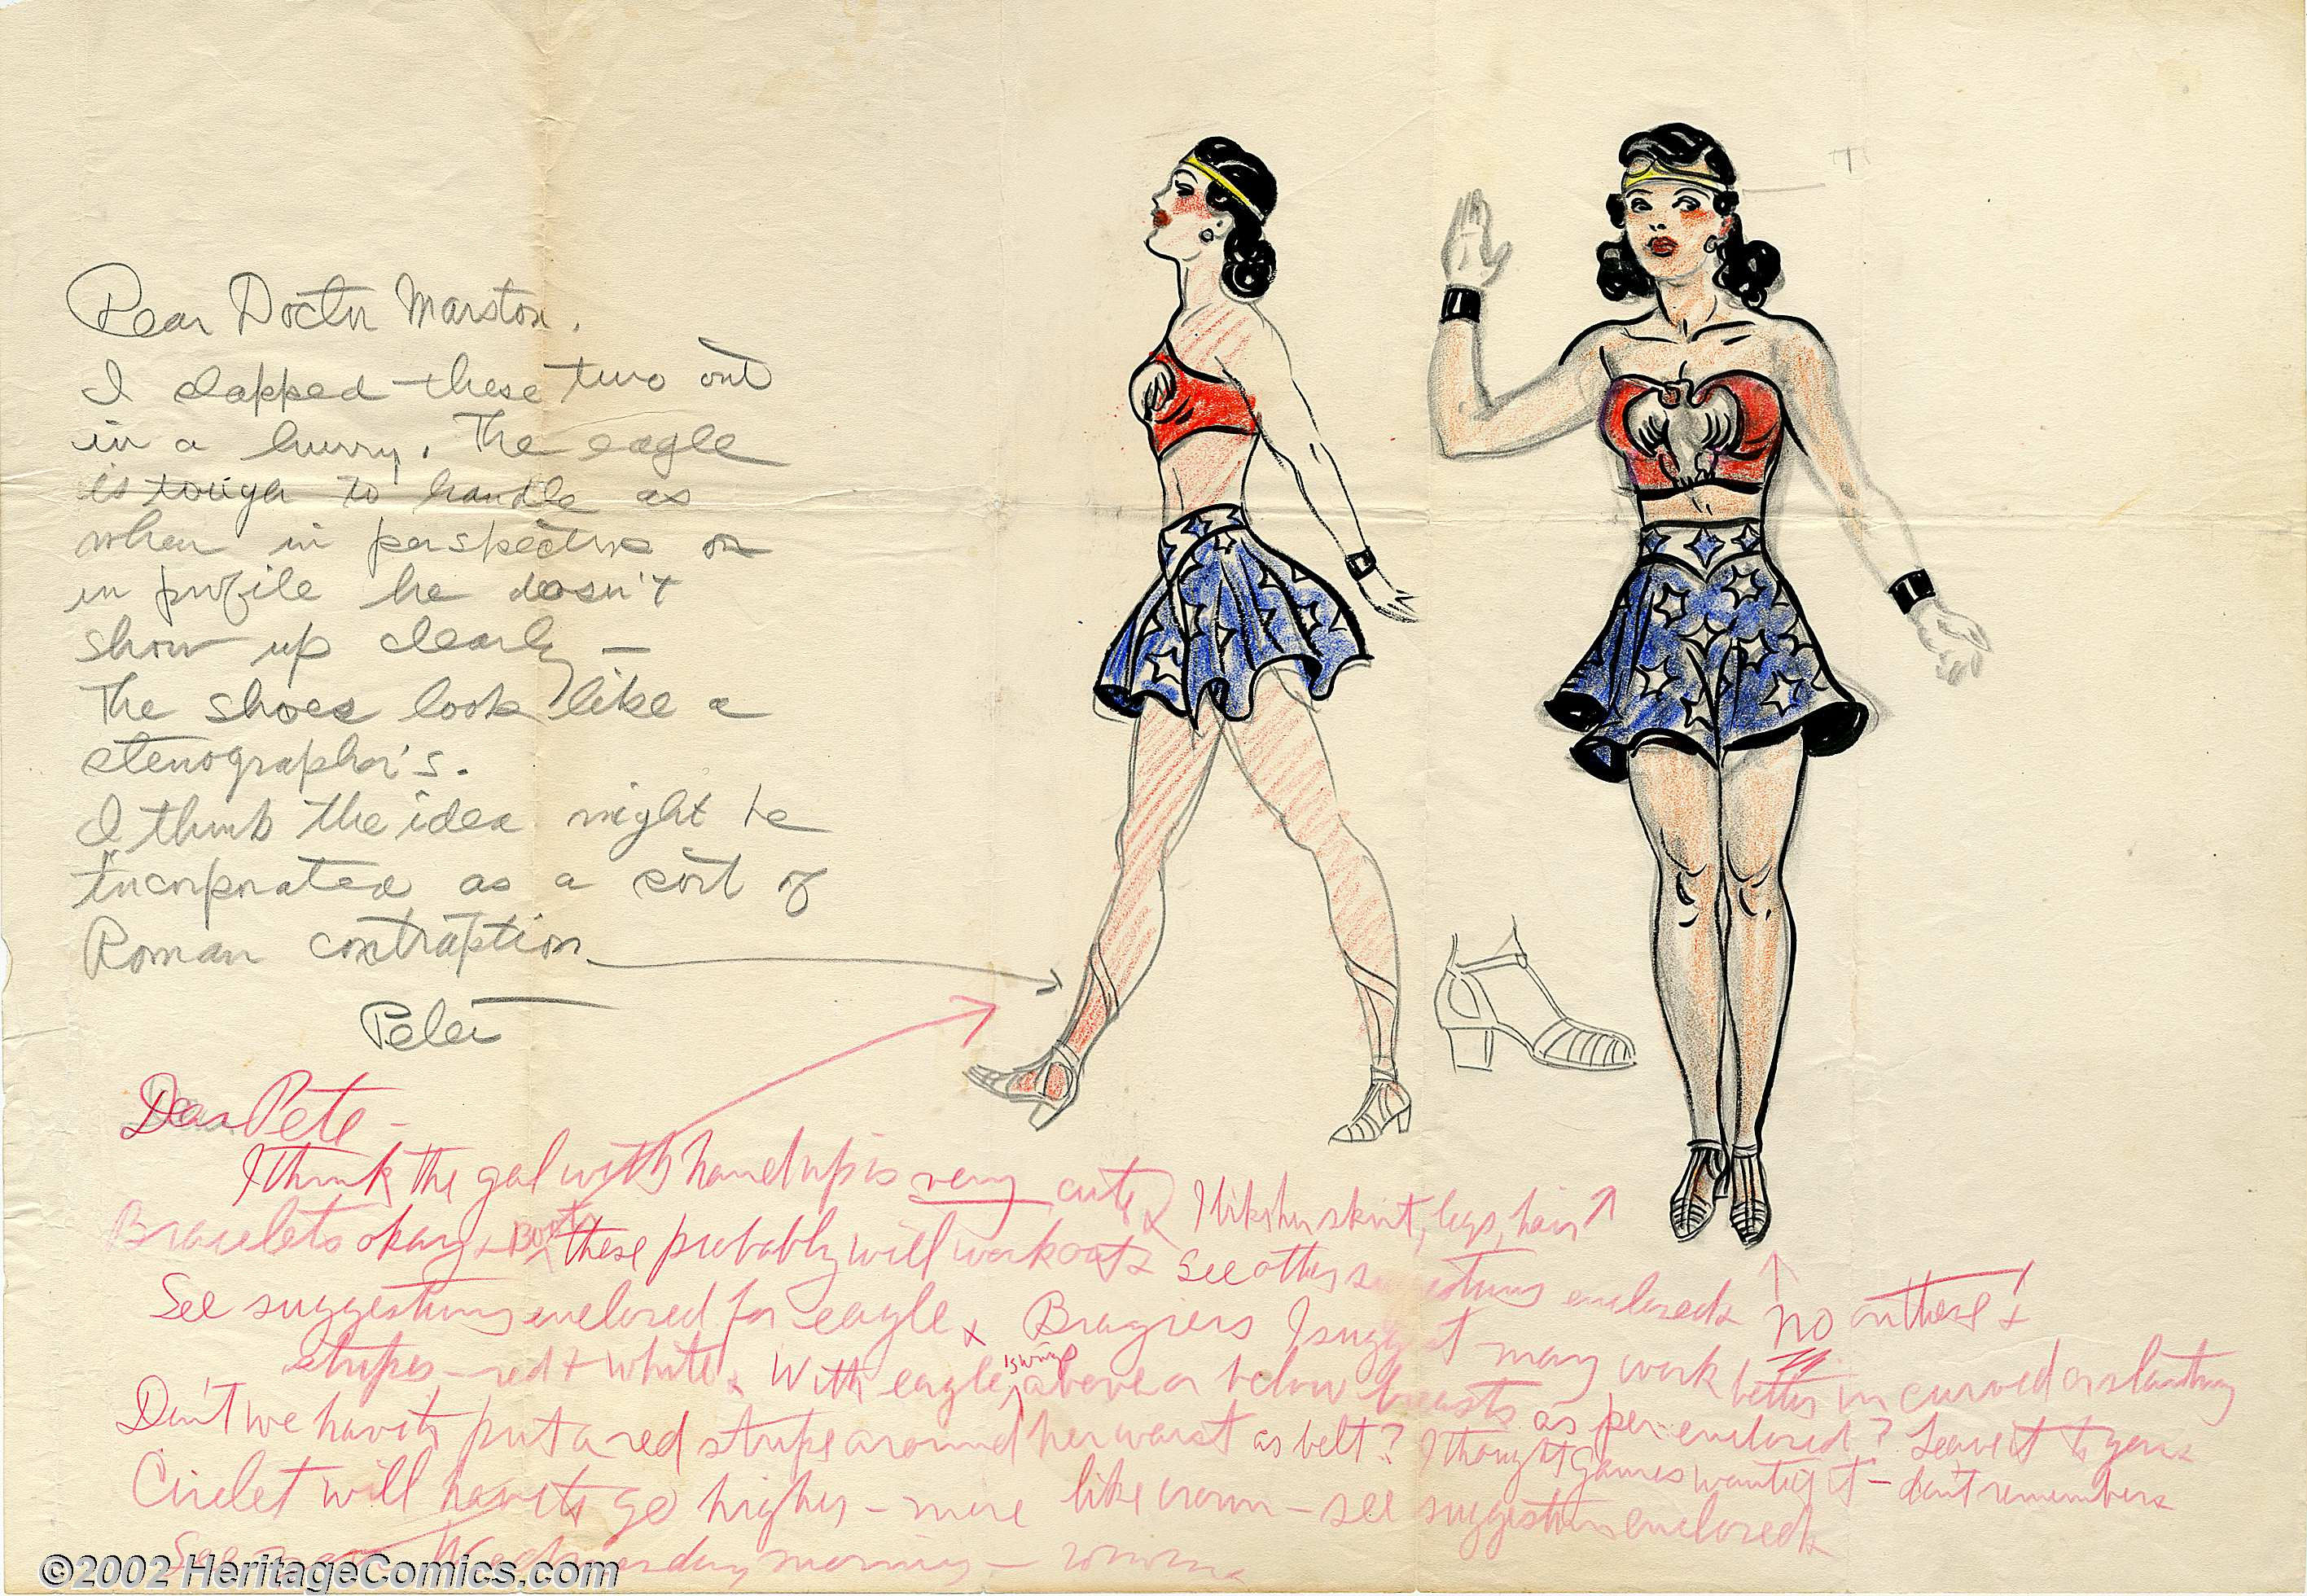 Dear Doctor Marston.
I slapped these two out
in a hurry. The eagle
is tough to handle as
when in perspective or
in profile he doesn't
show up clearly —
The shoes look like a
stenographer's.
I think the idea might be
incorporated as a sort of
Roman contraption
Peter
Dear Pete —
I think the gal with hand up is very cute. I like her skirt, legs, hair
Bracelets okay + Boots these probably will work out. See other suggestions enclosed. No on these!
See suggestions enclosed for eagle. I suggest may work better in curved or slanting
stripes — red + white. With eagle's wings above or below breasts as per enclosed? Leave it to you.
Don't we have to put a red stripe around her waist as belt? I thought Gaines wanted it — don't remember.
Circlet will have to go higher — more like crown — see suggestion enclosed.
See Wednesday morning —
©2002 HeritageComics.com